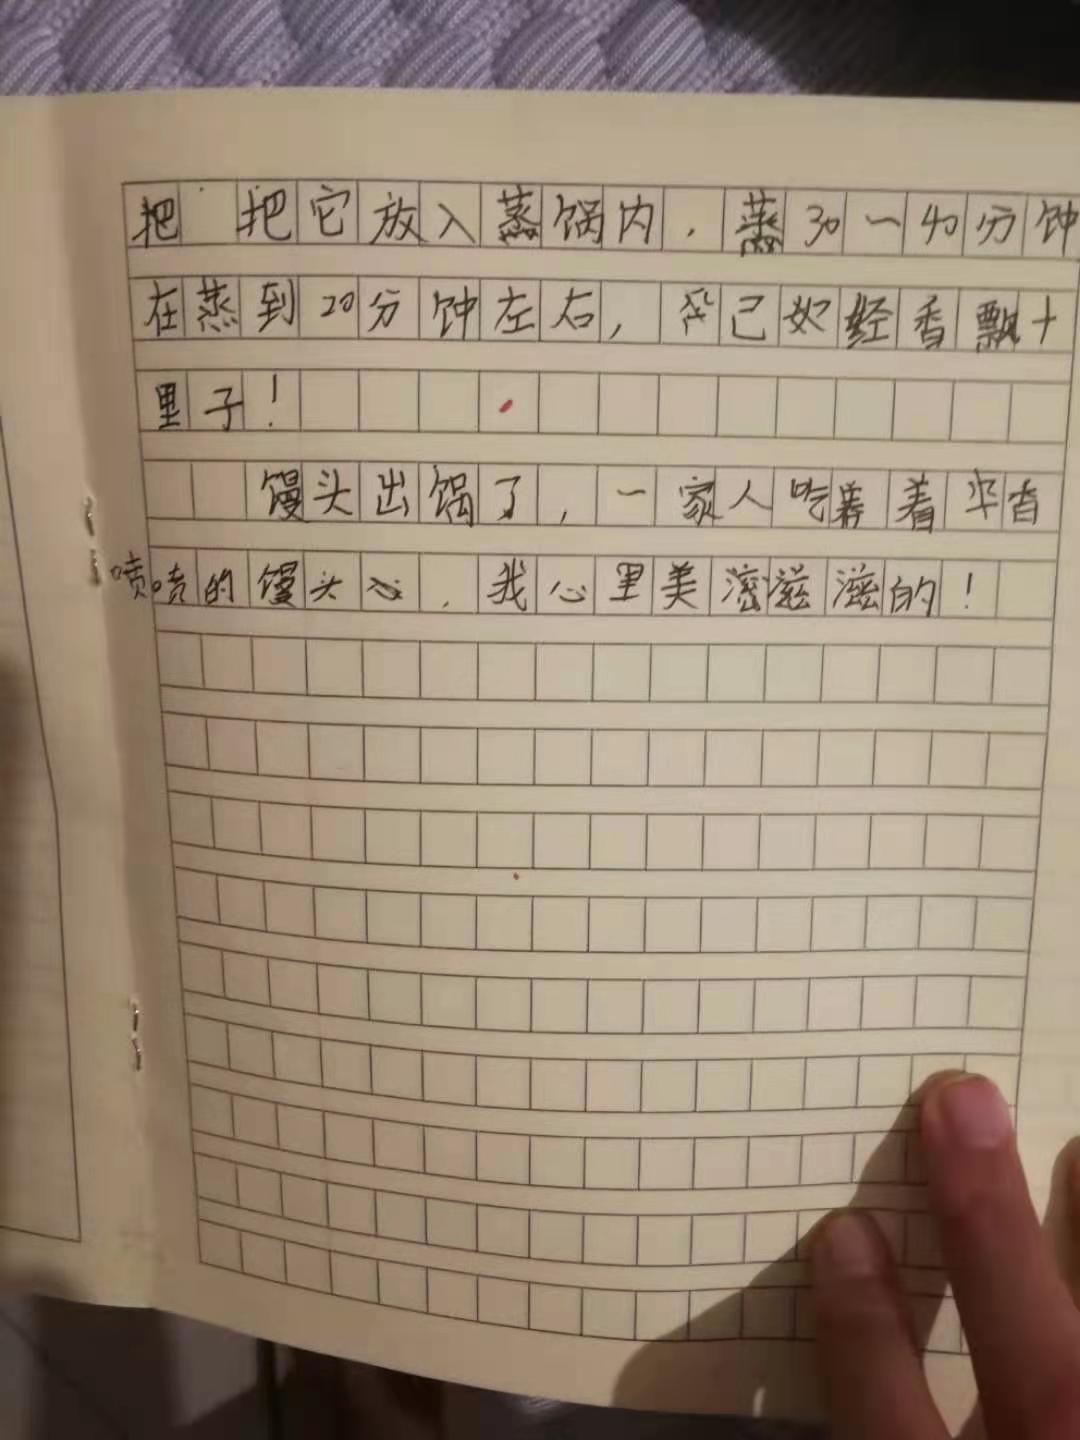 把 把它放入蒸锅内，蒸30一40分钟
在蒸到20分钟左右，已经香飘十
里子！
馒头出锅了，一家人吃着香
喷喷的馒头心，我心里美滋滋滋的！